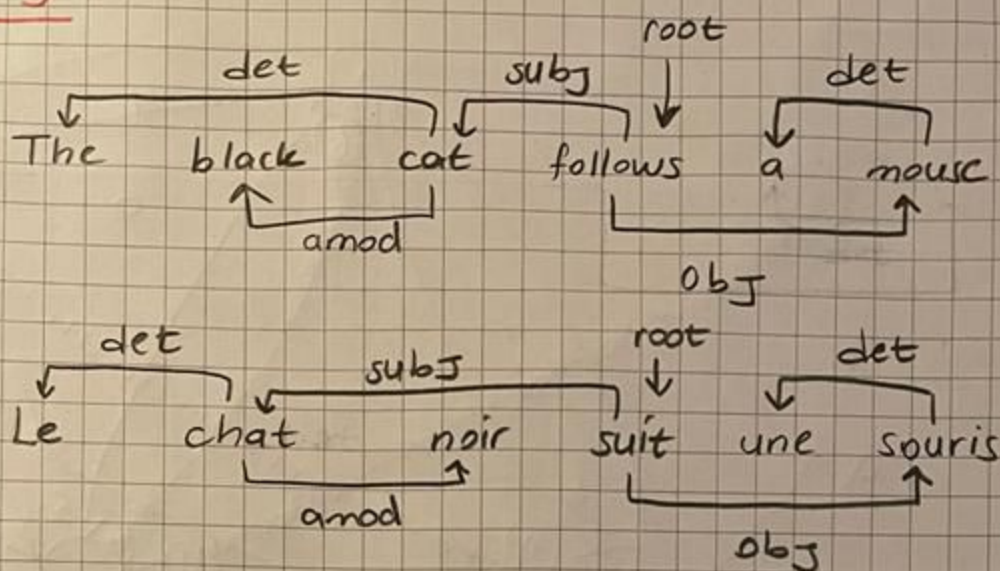 root
det subj det
The black cat follows a mouse
amod
obj
root
det subj det
Le chat noir suit une souris
amod
obj